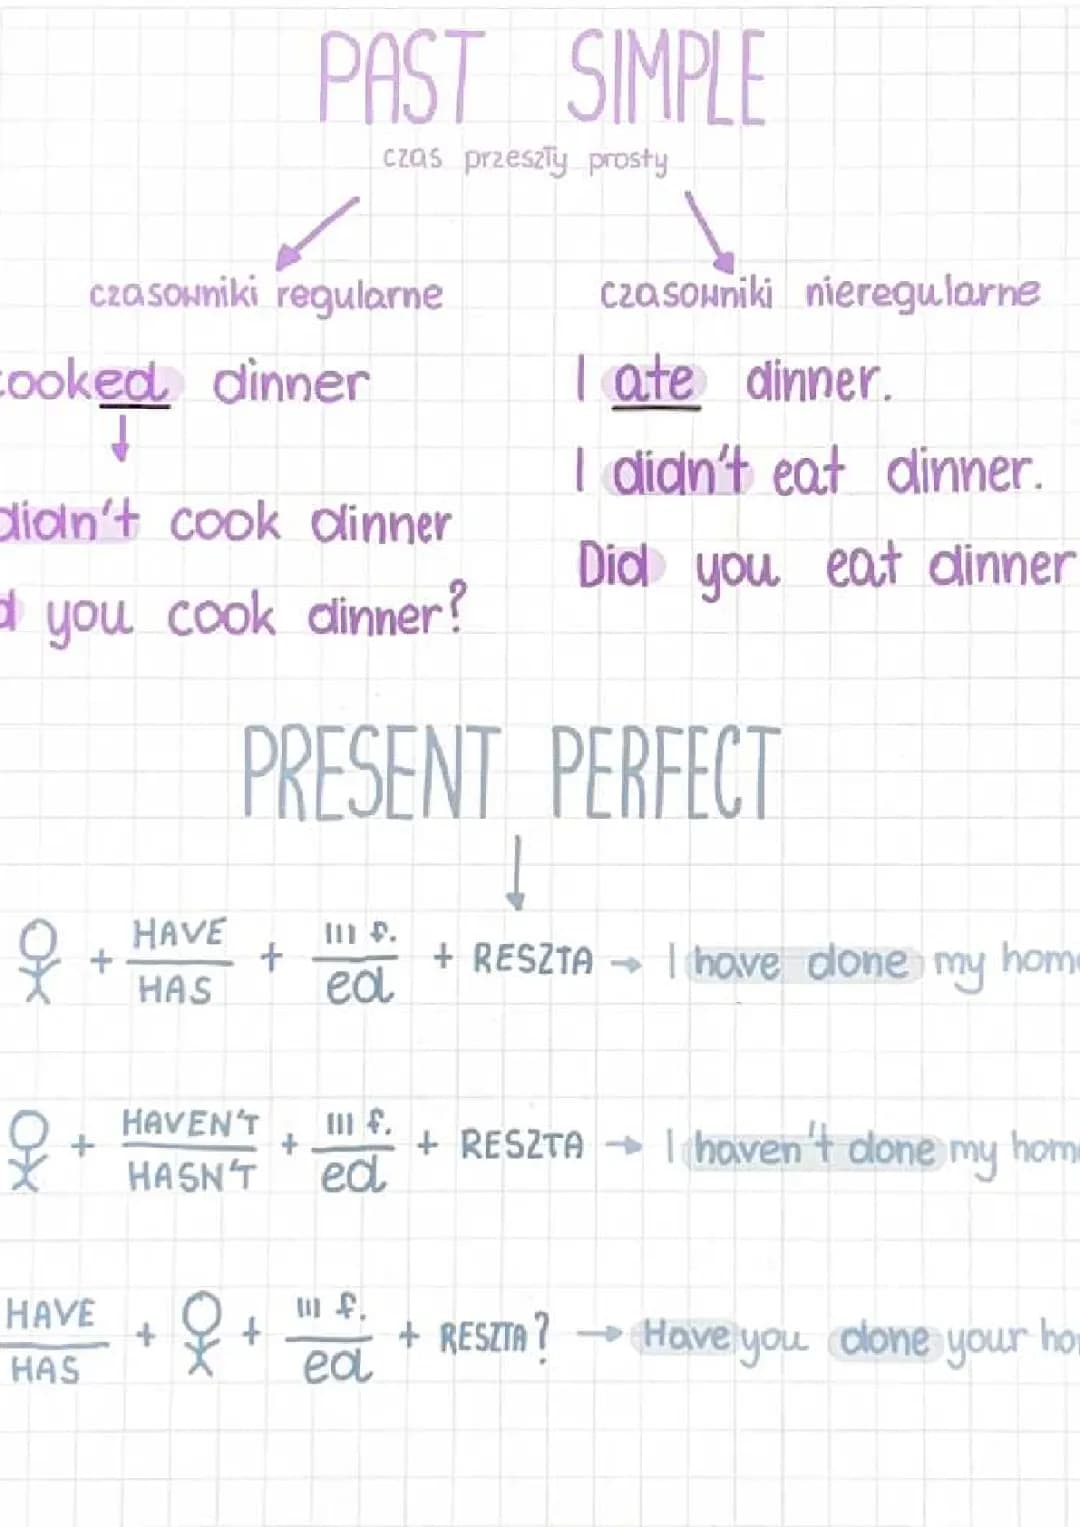 PAST SIMPLE
czas przeszły prosty
czasowniki regularne
czasowniki nieregularne
cooked dinner
I ate dinner.
didn't cook dinner
I didn't eat dinner.
d you cook dinner?
Did you eat dinner
PRESENT PERFECT
+ HAVE HAS + III f. ed + RESZTA → I have done my home
+ HAVEN'T HASN'T + III f. ed + RESZTA → I haven't done my home
HAVE HAS + + III f. ed + RESZTA? → Have you done your ho